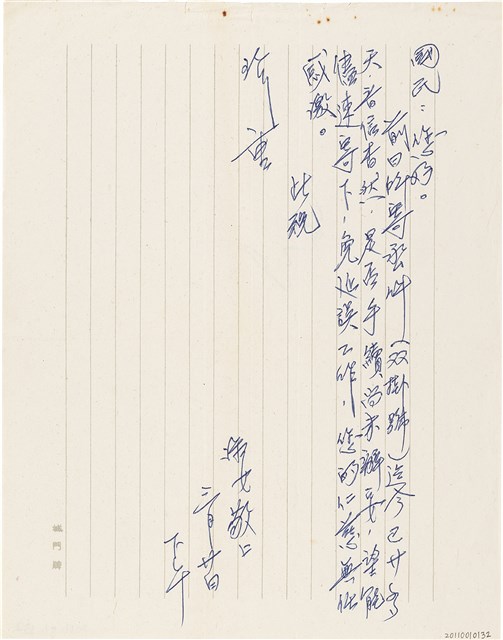 國民：您好。
前日所寄(双掛號)迄今已廿多
天，音信杳然，是否手續尚未辦妥，望能
儘速寄下，免延誤工作，您的仁慈無任
感激。
此祝
敬上
三月廿日
下午
20110010132